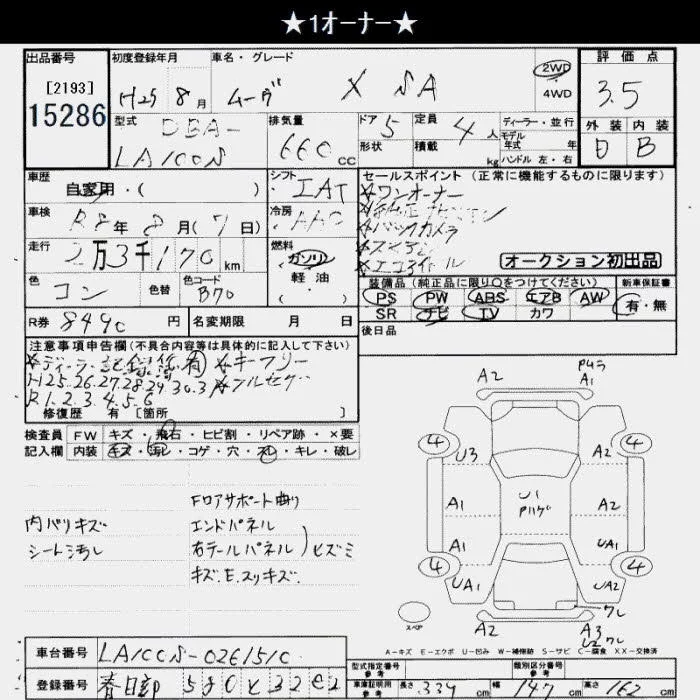 ★1オーナー★
出品番号
[2193]
15286
初度登録年月
H25 8月
車名・グレード
ムーヴ X SA
2WD
4WD
評価点
3.5
外装 内装
D B
型式
DBA-
LA100S
排気量
660 cc
ドア 5
形状
定員 4人
積載 kg
ディーラー・並行
モデル
年式 年
ハンドル 左・右
車歴
自家用・( )
シフト
IAT
セールスポイント (正常に機能するものに限ります)
☆ワンオーナー
☆バックカメラ
☆エコアイドル
オークション初出品
車検
R8年8月(7日)
冷房
AAC
走行
2万3千170km
燃料
ガソリン
軽油
( )
色
コン
色替
色コード
B70
装備品(純正品に限り○をつけてください)
PS PW ABS エアB AW
SR ナビ TV カワ
新車保証書
有・無
R券 8490円
名変期限 月 日
後日品
注意事項申告欄(不具合内容等は具体的に記入して下さい)
☆ディーラー記録簿有 ☆キーフリー
H25.26.27.28.29.30.3
R1.2.3.4.5.6
修復歴 有[箇所 ]
検査員
記入欄
FW キズ・飛石・ヒビ割・リペア跡・×要
内装 キズ・汚レ・コゲ・穴・スレ・キレ・破レ
内バリキズ
シート汚レ
Fロアサポート曲り
エンドパネル
右テールパネル
ヒズミ
キズ.E.スリキズ.
A2
A1
4
4
U3
A2
A1
U1
A2
A1
UA1
4
4
UA1
UA2
ワレ
スペア
A2
A3
U2 ワレ
A-キズ E-エクボ U-凹み W-補修跡 S-サビ C-腐食 XX-交換済
車台番号 LA100S-0261510
登録番号 春日部 580 と 3202
型式指定番号
参考
類別区分番号
参考
車庫証明用
参考
長さ 339cm
幅 147cm
高さ 162cm